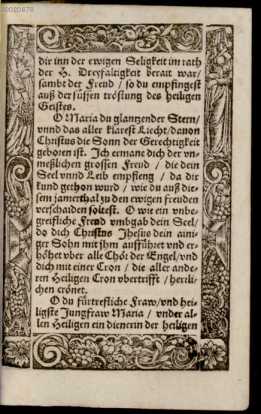 dir inn der ewigen Seligkeit im rath
der H. Dreyfaltigkeit berait war/
sambt der Freud / so du empfingest
auß der süssen tröstung des heiligen
Geistes.
O Maria du glantzender Stern/
vnnd das aller klarest Liecht/dauon
Christus die Sonn der Gerechtigkeit
geboren ist. Ich ermane dich der vn-
meßlichen grossen Freud / die dein
Seel vnnd Leib empfieng / da dir
kund gethon wurd / wie du auß die-
sem jamerthal zu den ewigen freuden
verschaiden soltest. O wie ein vnbe-
greifliche Freud vmbgab dein Seel/
do dich Christus Jhesus dein aini-
ger Sohn mit jhm auffführet vnd er-
höhet vber alle Chör der Engel/vnd
dich mit einer Cron / die aller ande-
ren Heiligen Cron vbertrifft / herrli-
chen crönet.
O du fürtrefliche Fraw/vnd hei-
ligste Jungfraw Maria / vnder al-
len Heiligen ein dienerin der heiligen